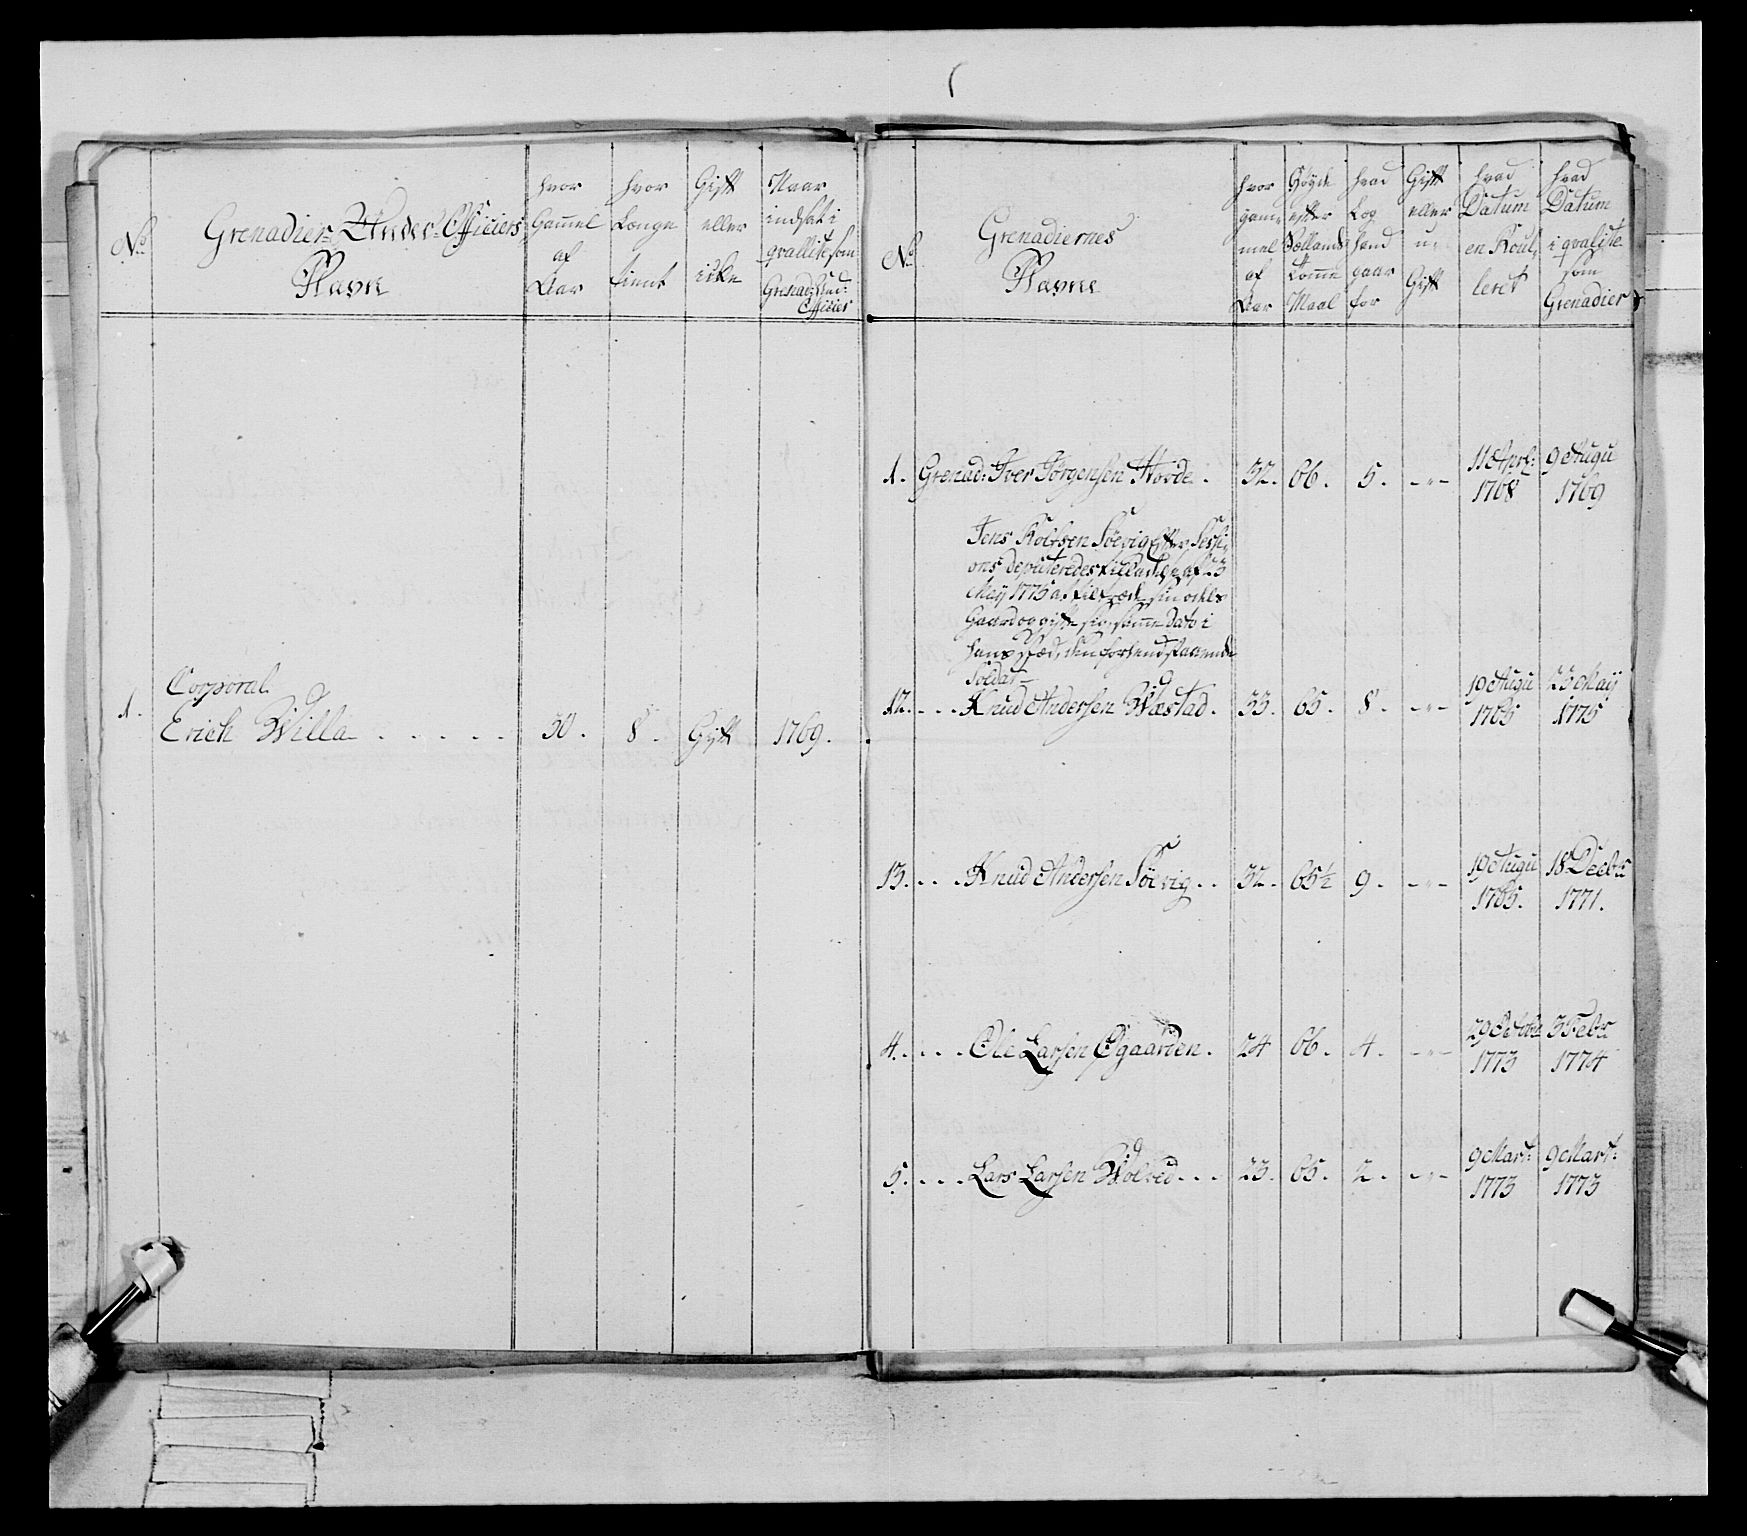 No
Grenadier Under Officiers
Navne
hvor
Gamel
af
Aar
hvor
Længe
tient
Gift
eller
icke
Naar
indsat i
qvallite som
Grenad: Und:
Officier
1.
Corporal
Erich Willa . . . . .
30.
8.
Gift
1769.
No
Grenadiernes
Navne
hvor
gam-
mel
af
Aar
Høyde
efter
Sællands
Tomme
Maal
hvad
Log
hand
gaar
for
Gift
eller
u-
Gift
hvad
Datum
en Roul-
leret
hvad
Datum
i qvalite
som
Grenadier
1. Grenad: Iver Jørgensen Hovde . 32. 66. 5. -"- 11 Aprl: 1768 9 Augu 1769
Jens Rolfsen Söevig efter Sessi-
ons deputeredes tilladelse af 23
May 1775 at
Gaard og gifte sig, samme Dato i
hans Stæd, den forhen staaende
Soldat
12. . . . Knud Andersen Wæstad. 33. 65. 8. -"- 19 Augu 1765 23 May 1775
13. . . . Knud Andersen Söevig . . 32. 65½ 9. -"- 19 Augu 1765. 18 Decbr 1771.
4. . . . Ole Larsen Øgaarden. 24 66. 4. -"- 29 Octobr 1773 3 Febr 1774
5. . . . Lars Larsen . . . 23. 65. 2. -"- 9 Mart: 1773 9 Mart: 1773